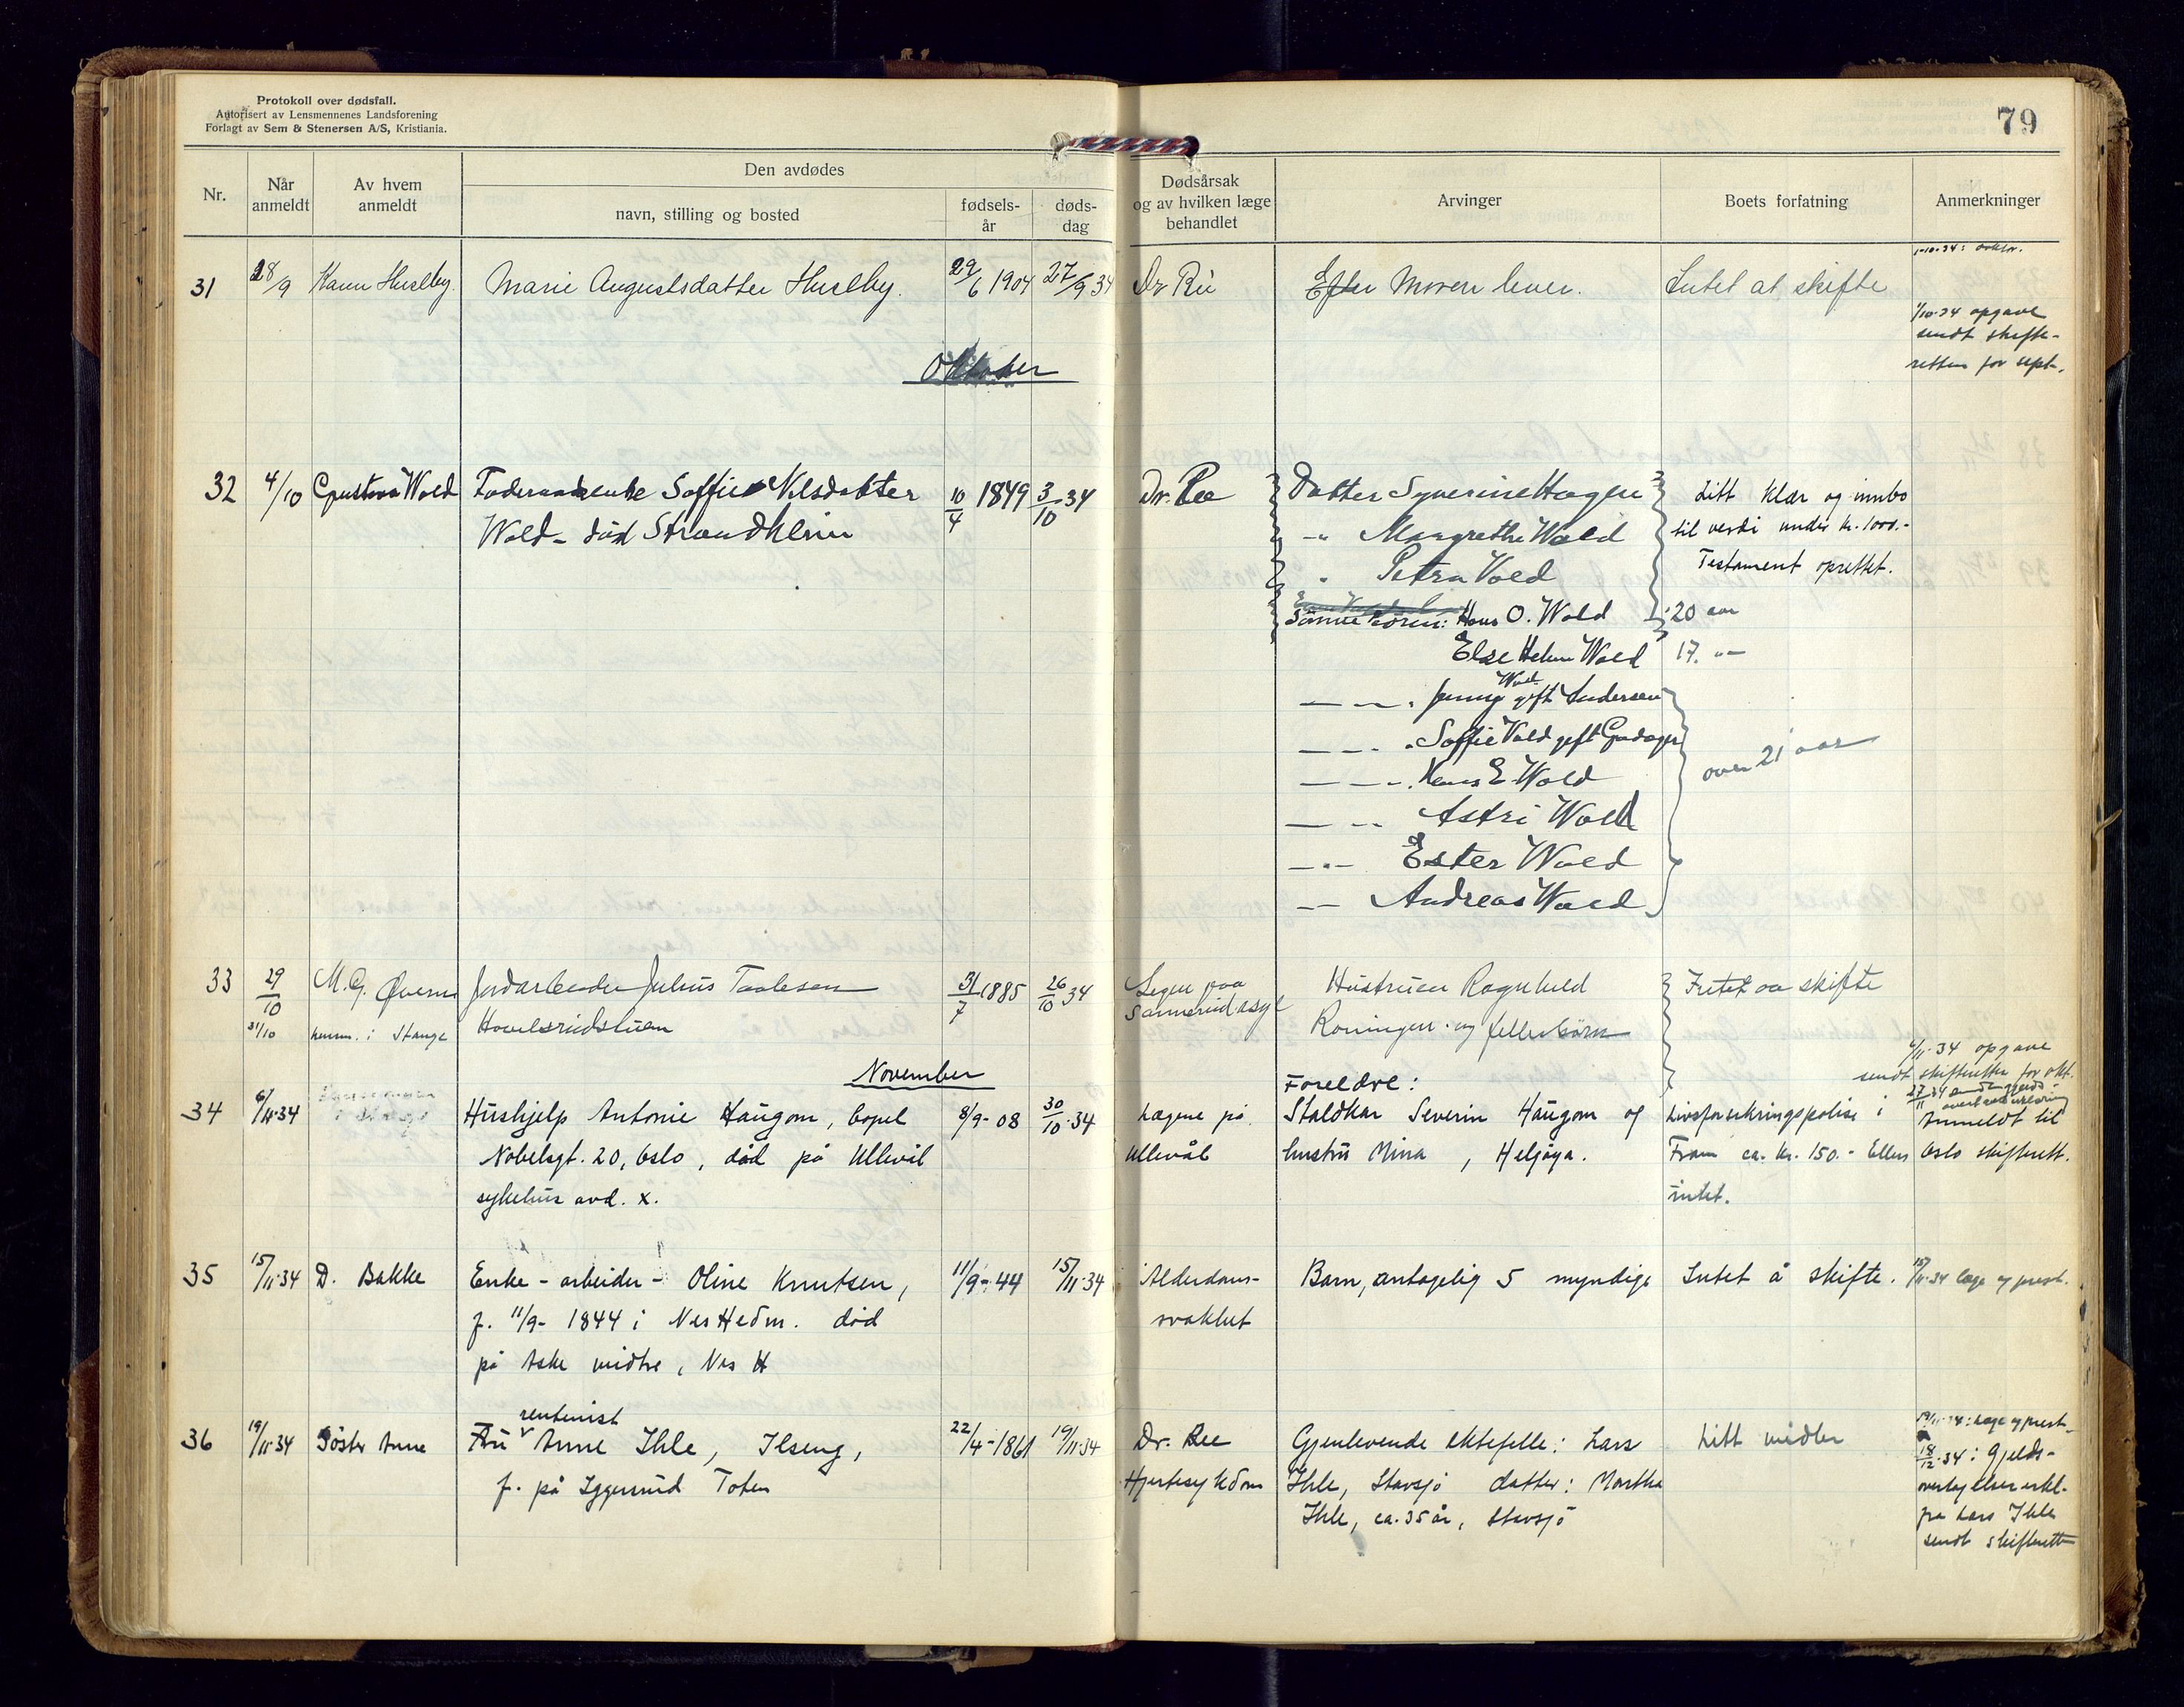 Protokoll over dødsfall.
Autorisert av Lensmennenes Landsforening
Forlagt av Sem & Stenersen A/S, Kristiania.
79
Nr.
Når anmeldt
Av hvem anmeldt
Den avdødes
navn, stilling og bosted
fødsels-år
døds-dag
Dødsårsak og av hvilken læge behandlet
Arvinger
Boets forfatning
Anmerkninger
31 28/9 Huselby. Marie Augustsdatter Huselby. 29/6 1904 27/9 34 Dr Moren lever. Intet at skifte
1/10-34 opgave
sendt skifte-
retten for sept.
Oktober
32 4/10 Gustava Wold Soffie Nilsdatter 10/4 1849 3/10 34 Dr. Ree Datter Syverine Hagen Litt klær og innbo
Wold - død Strandheim -"- Margrethe Wold til verdi under kr. 1000.-
" Petra Vold Testament oprettet.
Hans O. Wold 20 aar
Else Helene Wold 17. -"-
Jenny Wold gift Andersen
Soffie Vold gift
Hans E. Wold over 21 aar
Astri Wold
Ester Wold
Andreas Wold
33 29/10 M. G. Øveren Jordarbeider Julius Taalesen 31/7 1885 26/10 34 Legen paa Hustruen Ragnhild Intet aa skifte
31/10 henm. i Stange Hovelsrudstuen Sannerud asyl Roningen og felles børn
November
6/11-34 opgave
sendt skifteretten for okt.
27/11 34
Foreldre:
34 6/11-34 Hushjelp Antonie Haugom, bopel 8/9-08 30/10-34 Lægene på Staldkar Severin Haugom og Livsforsikringspolise i Anmeldt til
Nobelsgt. 20, Oslo, død på Ullevål Ullevål hustru Mina, Helgøya. Fram ca. kr. 150.- Ellers Oslo skifterett.
sykehus avd. x. intet.
35 15/11-34 D. Bakke Enke - arbeider - Oline Knutsen, 11/9-44 15/11-34 Alderdoms- Barn, antagelig 5 myndige Intet å skifte. 15/11-34 læge og prest.
f. 11/9- 1844 i Nes Hedm. død svakhet
på Aske midtre, Nes H
rentenist
36 19/11-34 Søster Anne Fru Anne Ihle, Ilseng, 22/4-1861 19/11-34 Dr. Ree Gjenlevende ektefelle: Lars Litt midler 19/11-34: læge og prest.
f. på Toten Hjertesykdom Ihle, Stavsjø datter: Martha 18/12-34: Gjelds-
Ihle, ca. 35 år, Stavsjø overtagelseserkl.
fra Lars Ihle
sendt skifterett